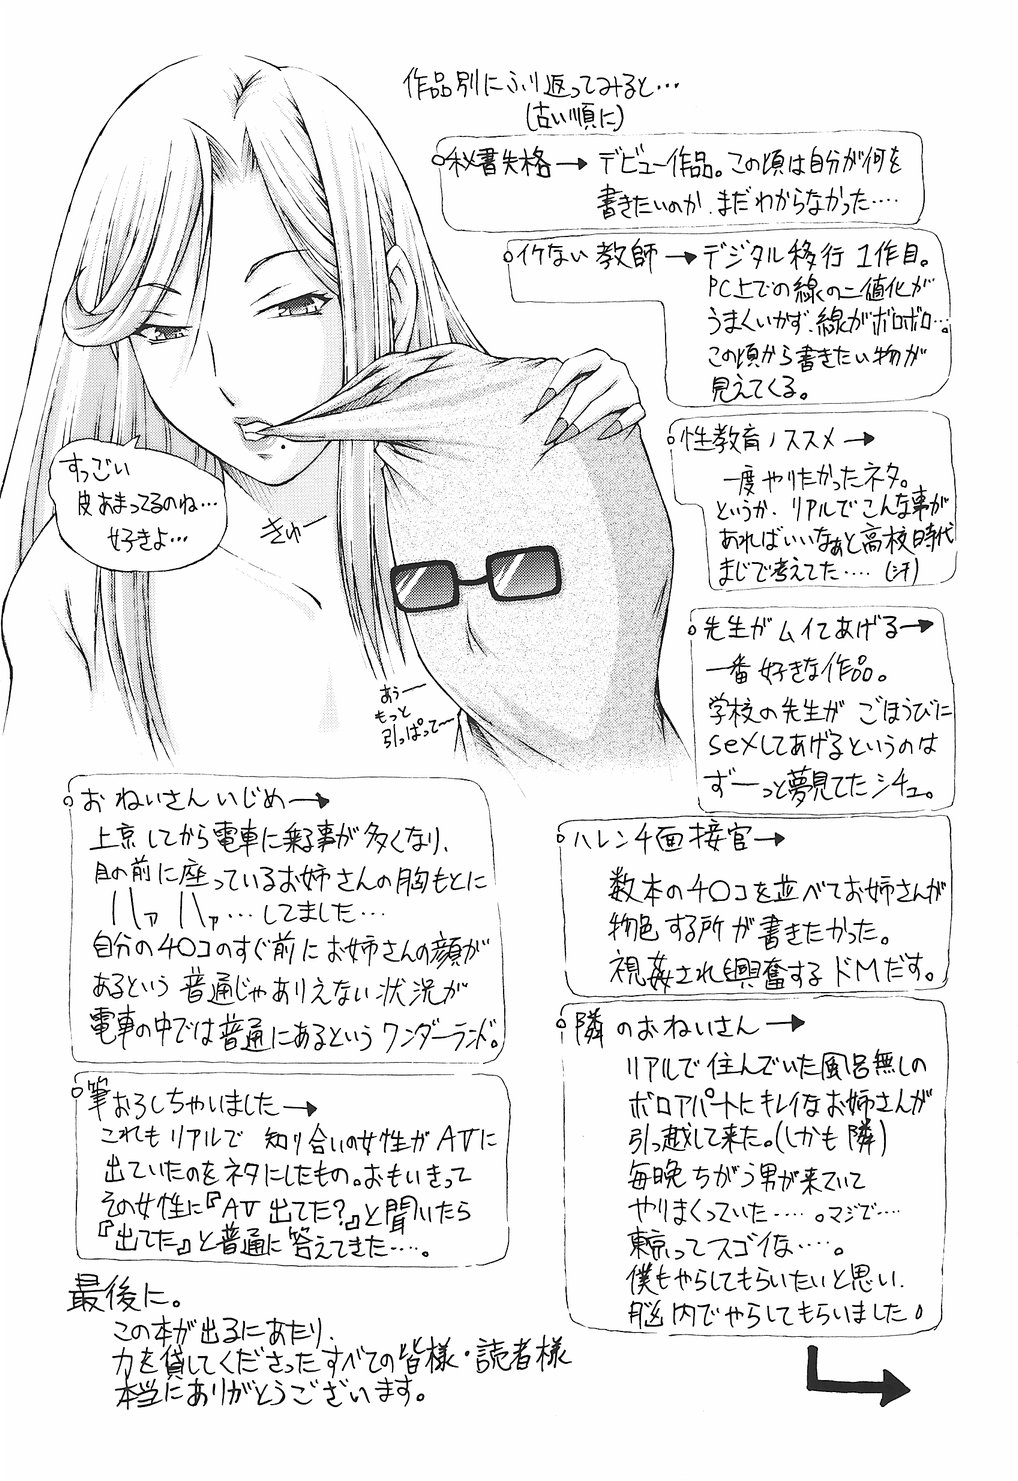 作品別にふり返ってみると…
(古い順に)
秘書失格→ デビュー作品。この頃は自分が何を
書きたいのか、まだわからなかった‥‥
イケない教師→デジタル移行1作目。
PC上での線の二値化が
うまくいかず、線がボロボロ…。
この頃から書きたい物が
見えてくる。
性教育ノススメ→
一度やりたかったネタ。
というか、リアルでこんな事が
あればいいなぁと高校時代
まじで考えてた‥‥(汗)
先生がムイてあげる→
一番好きな作品。
学校の先生がごほうびに
sexしてあげるというのは
ずーっと夢見てたシチュ。
すっごい
皮あまってるのね…
好きよ…
きゅー
あぅー
もっと
引っぱって〜
おねいさんいじめ→
上京してから電車に乗る事が多くなり、
目の前に座っているお姉さんの胸もとに
ハァハァ…してました…
自分のチ○コのすぐ前にお姉さんの顔が
あるという普通じゃありえない状況が
電車の中では普通にあるというワンダーランド。
筆おろしちゃいました→
これもリアルで知り合いの女性がAVに
出ていたのをネタにしたもの。おもいきって
その女性に『AV出てた?』と聞いたら
『出てた』と普通に答えてきた‥‥。
ハレンチ面接官→
数本のチ○コを並べてお姉さんが
物色する所が書きたかった。
視姦され興奮するドMだす。
隣のおねいさん→
リアルで住んでいた風呂無しの
ボロアパートにキレイなお姉さんが
引っ越して来た。(しかも隣)
毎晩ちがう男が来ていて
やりまくっていた‥‥。マジで‥‥
東京ってスゴイな‥‥。
僕もやらしてもらいたいと思い、
脳内でやらしてもらいました。
最後に。
この本が出るにあたり、
力を貸してくださったすべての皆様・読者様
本当にありがとうございます。